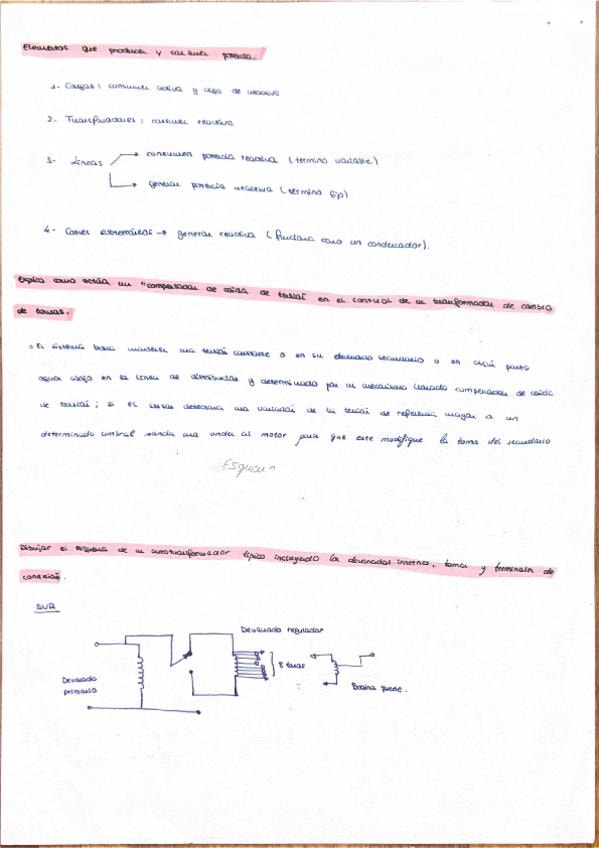 Elementos que producen y consumen potencia.
1- Cargas: consumen activa y algo de reactiva
2- Transformadores: consumen reactiva
3- Líneas → consumen potencia reactiva (término variable)
→ generar potencia reactiva (término fijo)
4- Cables subterráneos → generan reactiva (funciona como un condensador).
Explica como actúa un "compensador de caída de tensión" en el control de un transformador de cambio
de tomas.
El sistema busca mantener una tensión constante o en su devanado secundario o en algún punto
aguas abajo en la línea de distribución y determinado por un mecanismo llamado compensador de caída
de tensión; si el sensor detectara una variación de la tensión de referencia mayor a un
determinado umbral manda una orden al motor para que este modifique la toma del secundario
Dibujar el esquema de un autotransformador típico incluyendo los devanados internos, tomas y terminales de
conexión.
SVR
Devanado regulador
8 tomas
Devanado
primario
Bobina puede.